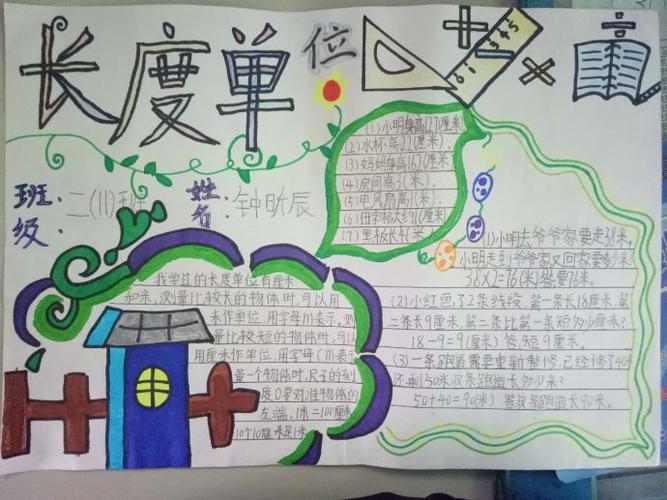 长度单位
班级：二(11)班
姓名：钟昕辰
(1)小明身高127(厘米)
(2)水杯高22(厘米),
(3)妈妈身高167(厘米)
(4)房间高3(米),
(5)电风扇高1(米),
(7)黑板长4(米)
我学过的长度单位有厘米
和米,测量比较长的物体时,可以用
米作单位,用字母m表示,测
量比较短的物体时,可以
用厘米作单位,用字母
量一个物体时,尺子的刻
度0要对准物体的
左端。1米=100厘米
10个10厘米是1米
(1)小明去爷爷家要走38米,
小明走到爷爷家又回家要
38×2=76(米)答:要76米。
(2)小红色了2条线段,第一条长18厘米,第
二条长9厘米,第二条比第一条短多少厘米?
18-9=9(厘米) 答:短9厘米。
(3)一条跑道需要重新整修,已经修了40米
还剩50米,这条跑道长多少米?
50+40=90(米) 答:这条跑道长90米。